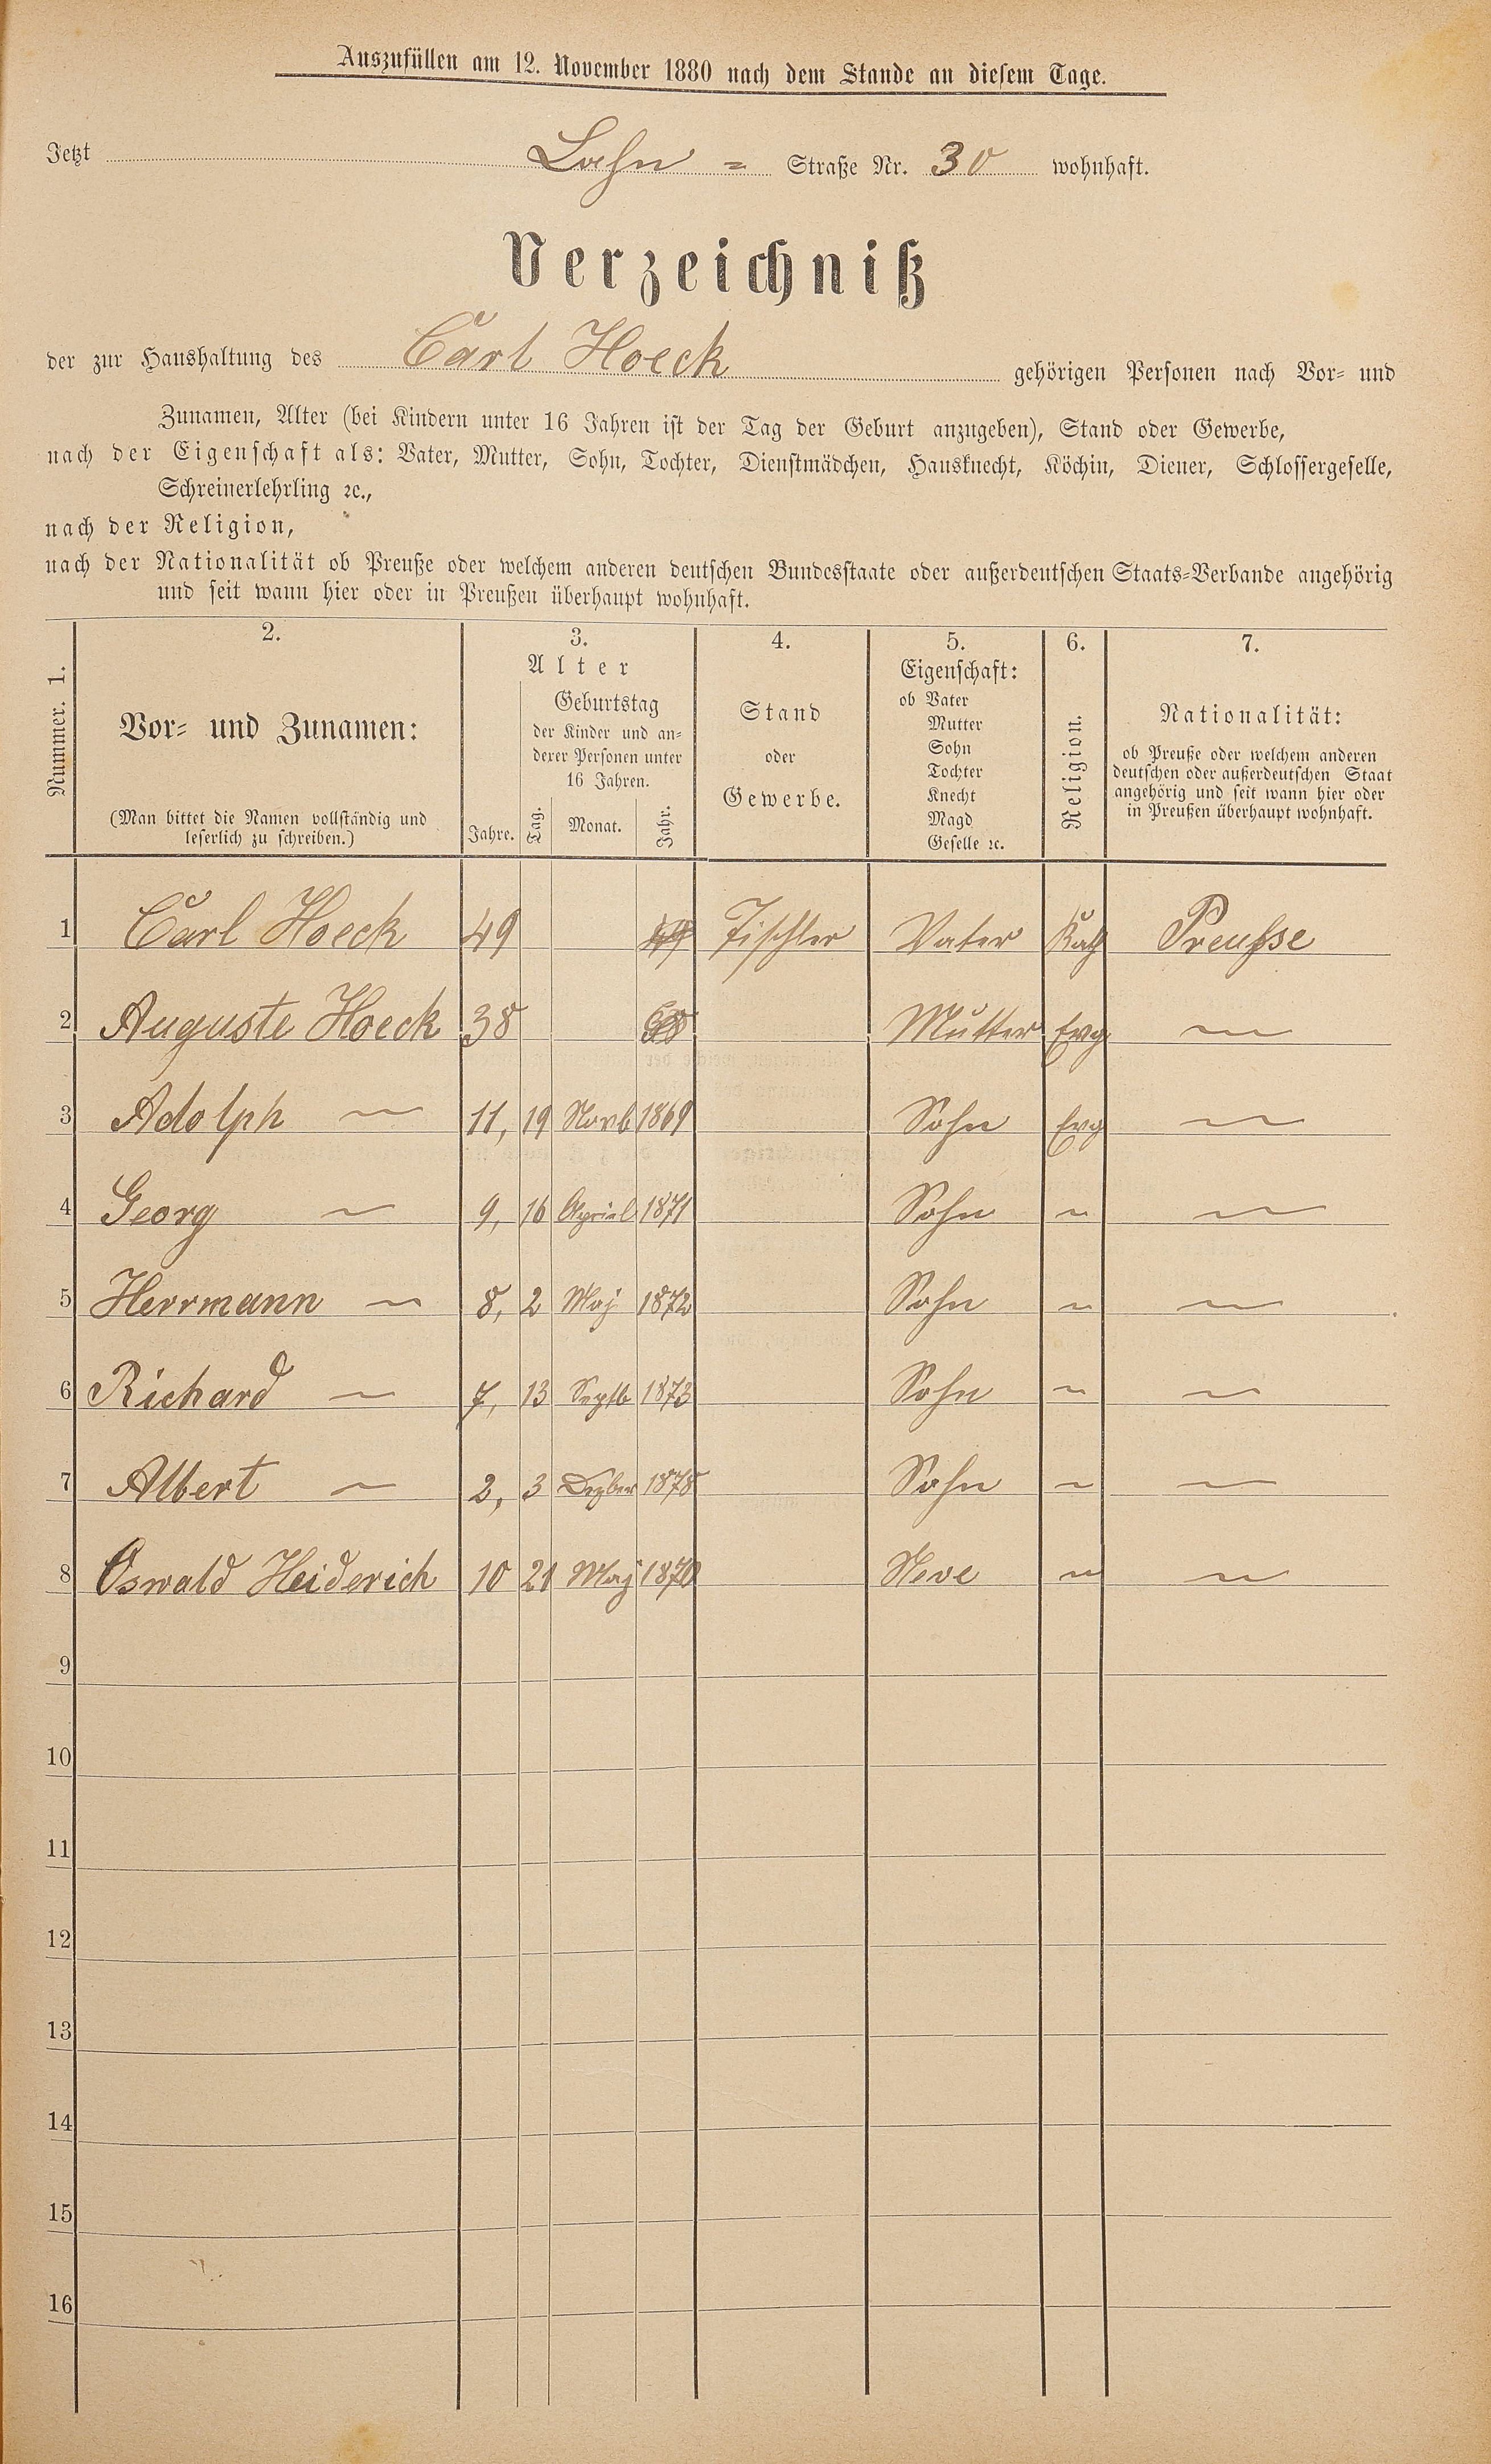 Auszufüllen am 12. November 1880 nach dem Stande an diesem Tage.
Jetzt Lahn = Straße Nr. 30 wohnhaft.
Verzeichniß
der zur Haushaltung des Carl Hoeck gehörigen Personen nach Vor- und
Zunamen, Alter (bei Kindern unter 16 Jahren ist der Tag der Geburt anzugeben), Stand oder Gewerbe,
nach der Eigenschaft als: Vater, Mutter, Sohn, Tochter, Dienstmädchen, Hausknecht, Köchin, Diener, Schlossergeselle,
Schreinerlehrling ꝛc.,
nach der Religion,
nach der Nationalität ob Preuße oder welchem anderen deutschen Bundesstaate oder außerdeutschen Staats-Verbande angehörig
und seit wann hier oder in Preußen überhaupt wohnhaft.
Nummer. 1.
2.
Vor- und Zunamen:
(Man bittet die Namen vollständig und
leserlich zu schreiben.)
3.
Alter
Jahre.
Geburtstag
der Kinder und an-
derer Personen unter
16 Jahren.
Tag. Monat. Jahr.
4.
Stand
oder
Gewerbe.
5.
Eigenschaft:
ob Vater
Mutter
Sohn
Tochter
Knecht
Magd
Geselle ꝛc.
6.
Religion.
7.
Nationalität:
ob Preuße oder welchem anderen
deutschen oder außerdeutschen Staat
angehörig und seit wann hier oder
in Preußen überhaupt wohnhaft.
1 Carl Hoeck 49 Tischler Vater Kath Preußse
2 Auguste Hoeck 38 Mutter Evg
3 Adolph 11, 19 Novb 1869 Sohn Evg
4 Georg 9, 16 Apriel 1871 Sohn
5 Herrmann 8, 2 Maj 1872 Sohn
6 Richard 7, 13 Septb 1873 Sohn
7 Albert 2, 3 Dezber 1878 Sohn
8 Oswald Heiderich 10 21 Maj 1870 Neve
9
10
11
12
13
14
15
16